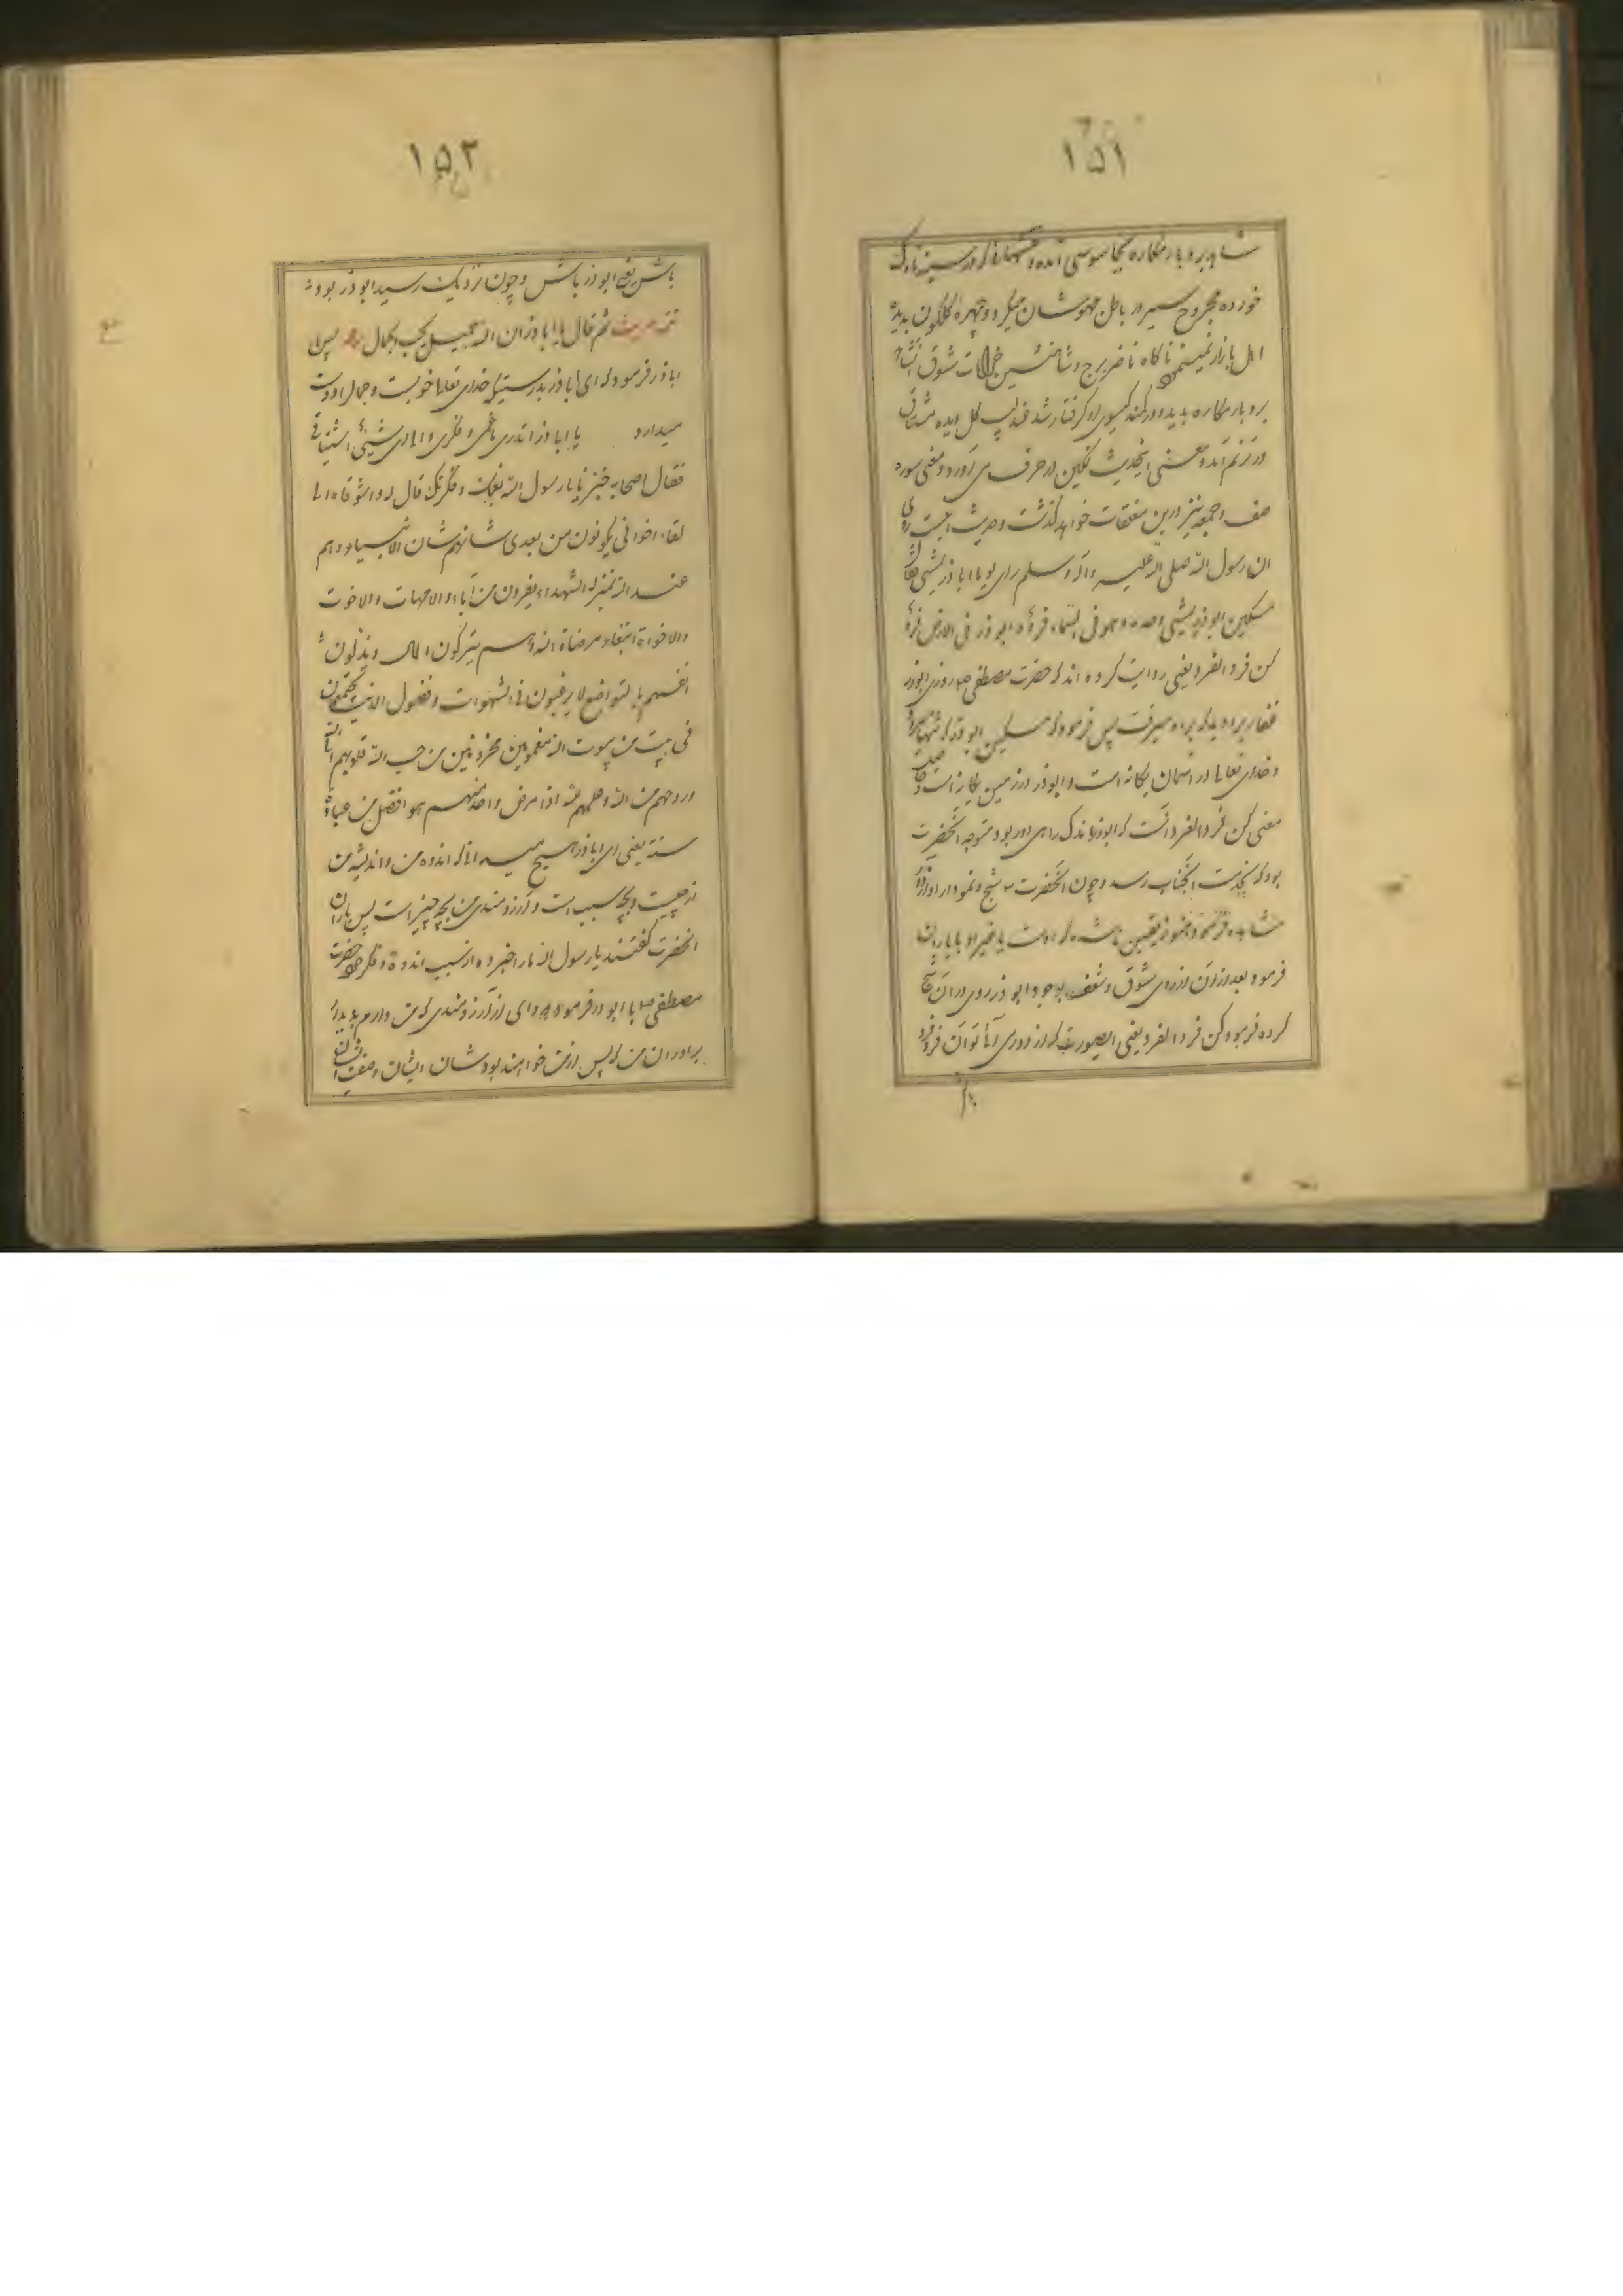 ۱۵۱
شاید بر و بار مکاره بجاسوسی آمده و
خورده مجروح سیر در باطن مهوشان میکرد و چهره گلگون بدیدهٔ
اهل بازار نمینمود ناکاه ناظر برج
بر و بار مکاره بدید و در کمند کیسوی او کرفتار شد عندلیب کل دیده مشتاق
در ترنم آمد و معنی اینحدیث نکین در حرف می آورد و معنی سوره
صف و جمعه نیز درین مغلقات خواهد کذشت و حدیث اینست روی
ان رسول الله صلی الله علیه و آله و سلم رای یوما اباذر یمشی فقال
مسکین ابوذر یمشی وحده و هو فی السماء فرد و ابوذر فی الارض فرد
کن فردا لفرد یعنی روایت کرده اند که حضرت مصطفی ص روزی ابوذر
غفار یرا دید که براه میرفت پس فرمود که مسکین ابوذر که تنها میرود
و خدای تعالی در آسمان یکانه است و ابوذر در زمین یکانه است و
معنی کن فردا لفرد آنست که ابوذر باندک راهی دور بود متوجه آنحضرت
بود که بخدمت آنجناب رسد و چون آنحضرت شبح و نمودار او از دور
مشاهده فرمود و هنوز یقین ناشده که اوست یا غیر او با یاران
فرمود بعد از آن از روی شوق و شعف بوجود ابوذر روی در آن شبح
کرده فرمود کن فردا لفرد یعنی ایصورت که از دوری آیا توان فرد فرد
۱۵۲
باش یعنی ابوذر باش و چون نزدیک رسید ابوذر بود
ثم قال یا اباذر ان الله جمیل یحب الجمال پس با
اباذر فرمود که ای اباذر بدرستیکه خدای تعالی خوبست و جمال را دوست
میدارد یا اباذر اتدری ما غمی و فکری و الی ای شیئ اشتیاقی
فقال اصحابه خبرنا یا رسول الله بغمک و فکرتک قال له واشوقاه الی
لقاء اخوانی یکونون من بعدی شانهم شان الانبیاء و هم
عند الله بمنزلة الشهداء یفرون من الاباء و الامهات و الاخوت
والاخوات ابتغاء مرضاة الله و هم یترکون المال و یذلون
انفسهم بالتواضع لا یرغبون فی الشهوات و فضول الدنیا یجتمعون
فی بیت من بیوت الله مغمومین محزونین من حب الله قلوبهم الی الله
و روحهم من الله و علمهم لله اذا مرض واحد منهم هو افضل من عبادة
سنة یعنی ای اباذر هیچ میدانی که اندوه من و اندیشه من
از چیست و بچه سبب است و آرزومندی من بچه چیز است پس یاران
آنحضرت کفتند یا رسول الله ما را خبر ده از سبب اندوه و فکر خود حضرت
مصطفی ص با ابوذر فرمود که وای از آرزومندی که من دارم بدیدار
برادران من که پس از من خواهند بود شان ایشان